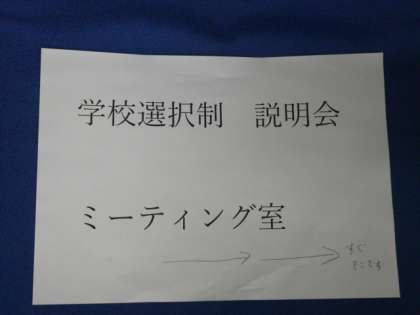 学校選択制　説明会
ミーティング室
すぐ
そこです